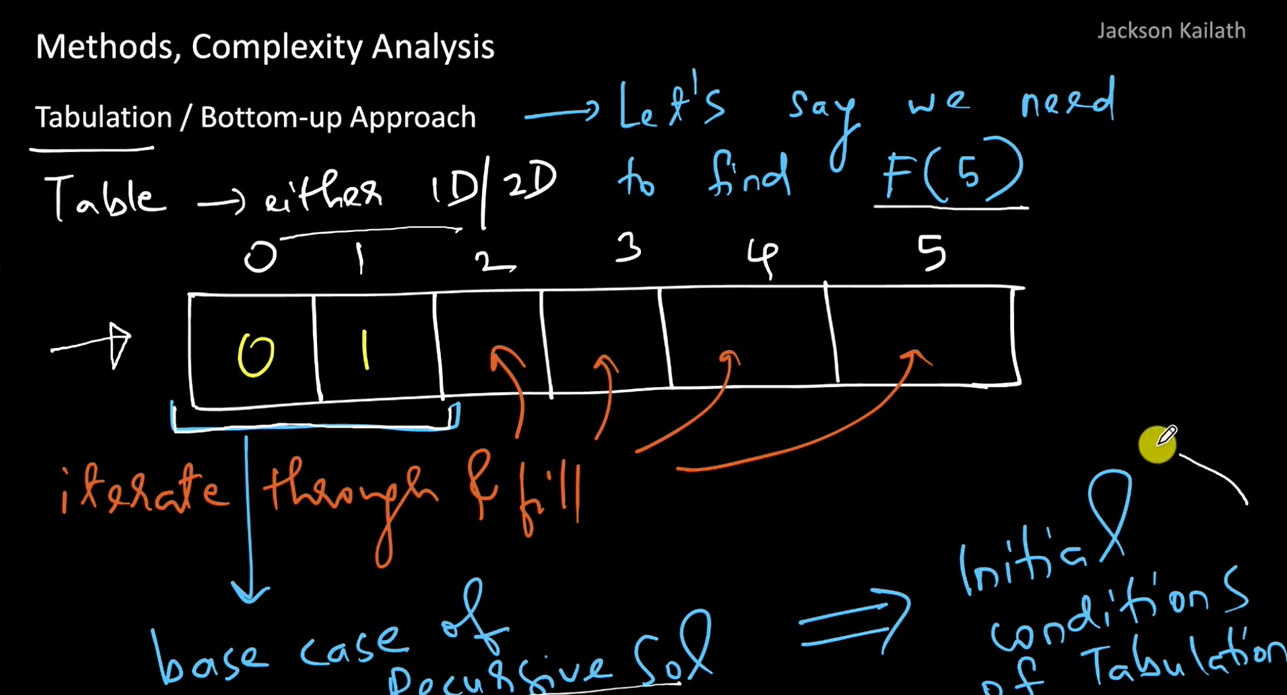 Jackson Kailath
Methods, Complexity Analysis
Tabulation / Bottom-up Approach → Let's say we need
to find F(5)
Table → either 1D/2D
0 1 2 3 4 5
0 1
iterate through & fill
base case of
Recursive Sol
⇒ Initial
conditions
of Tabulation